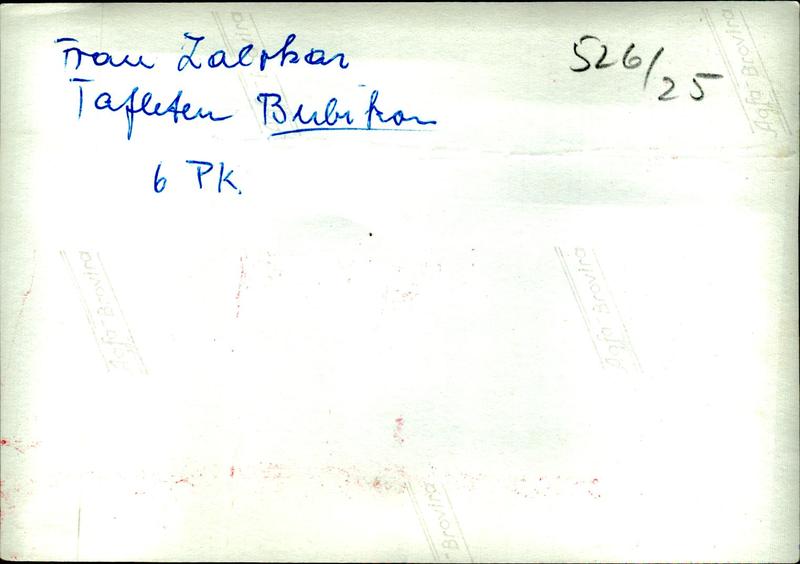 Frau Zalokar
526/25
Tafleten Bubikon
6 PK.
Agfa-Brovira
Agfa-Brovira
Agfa-Brovira
-Brovira